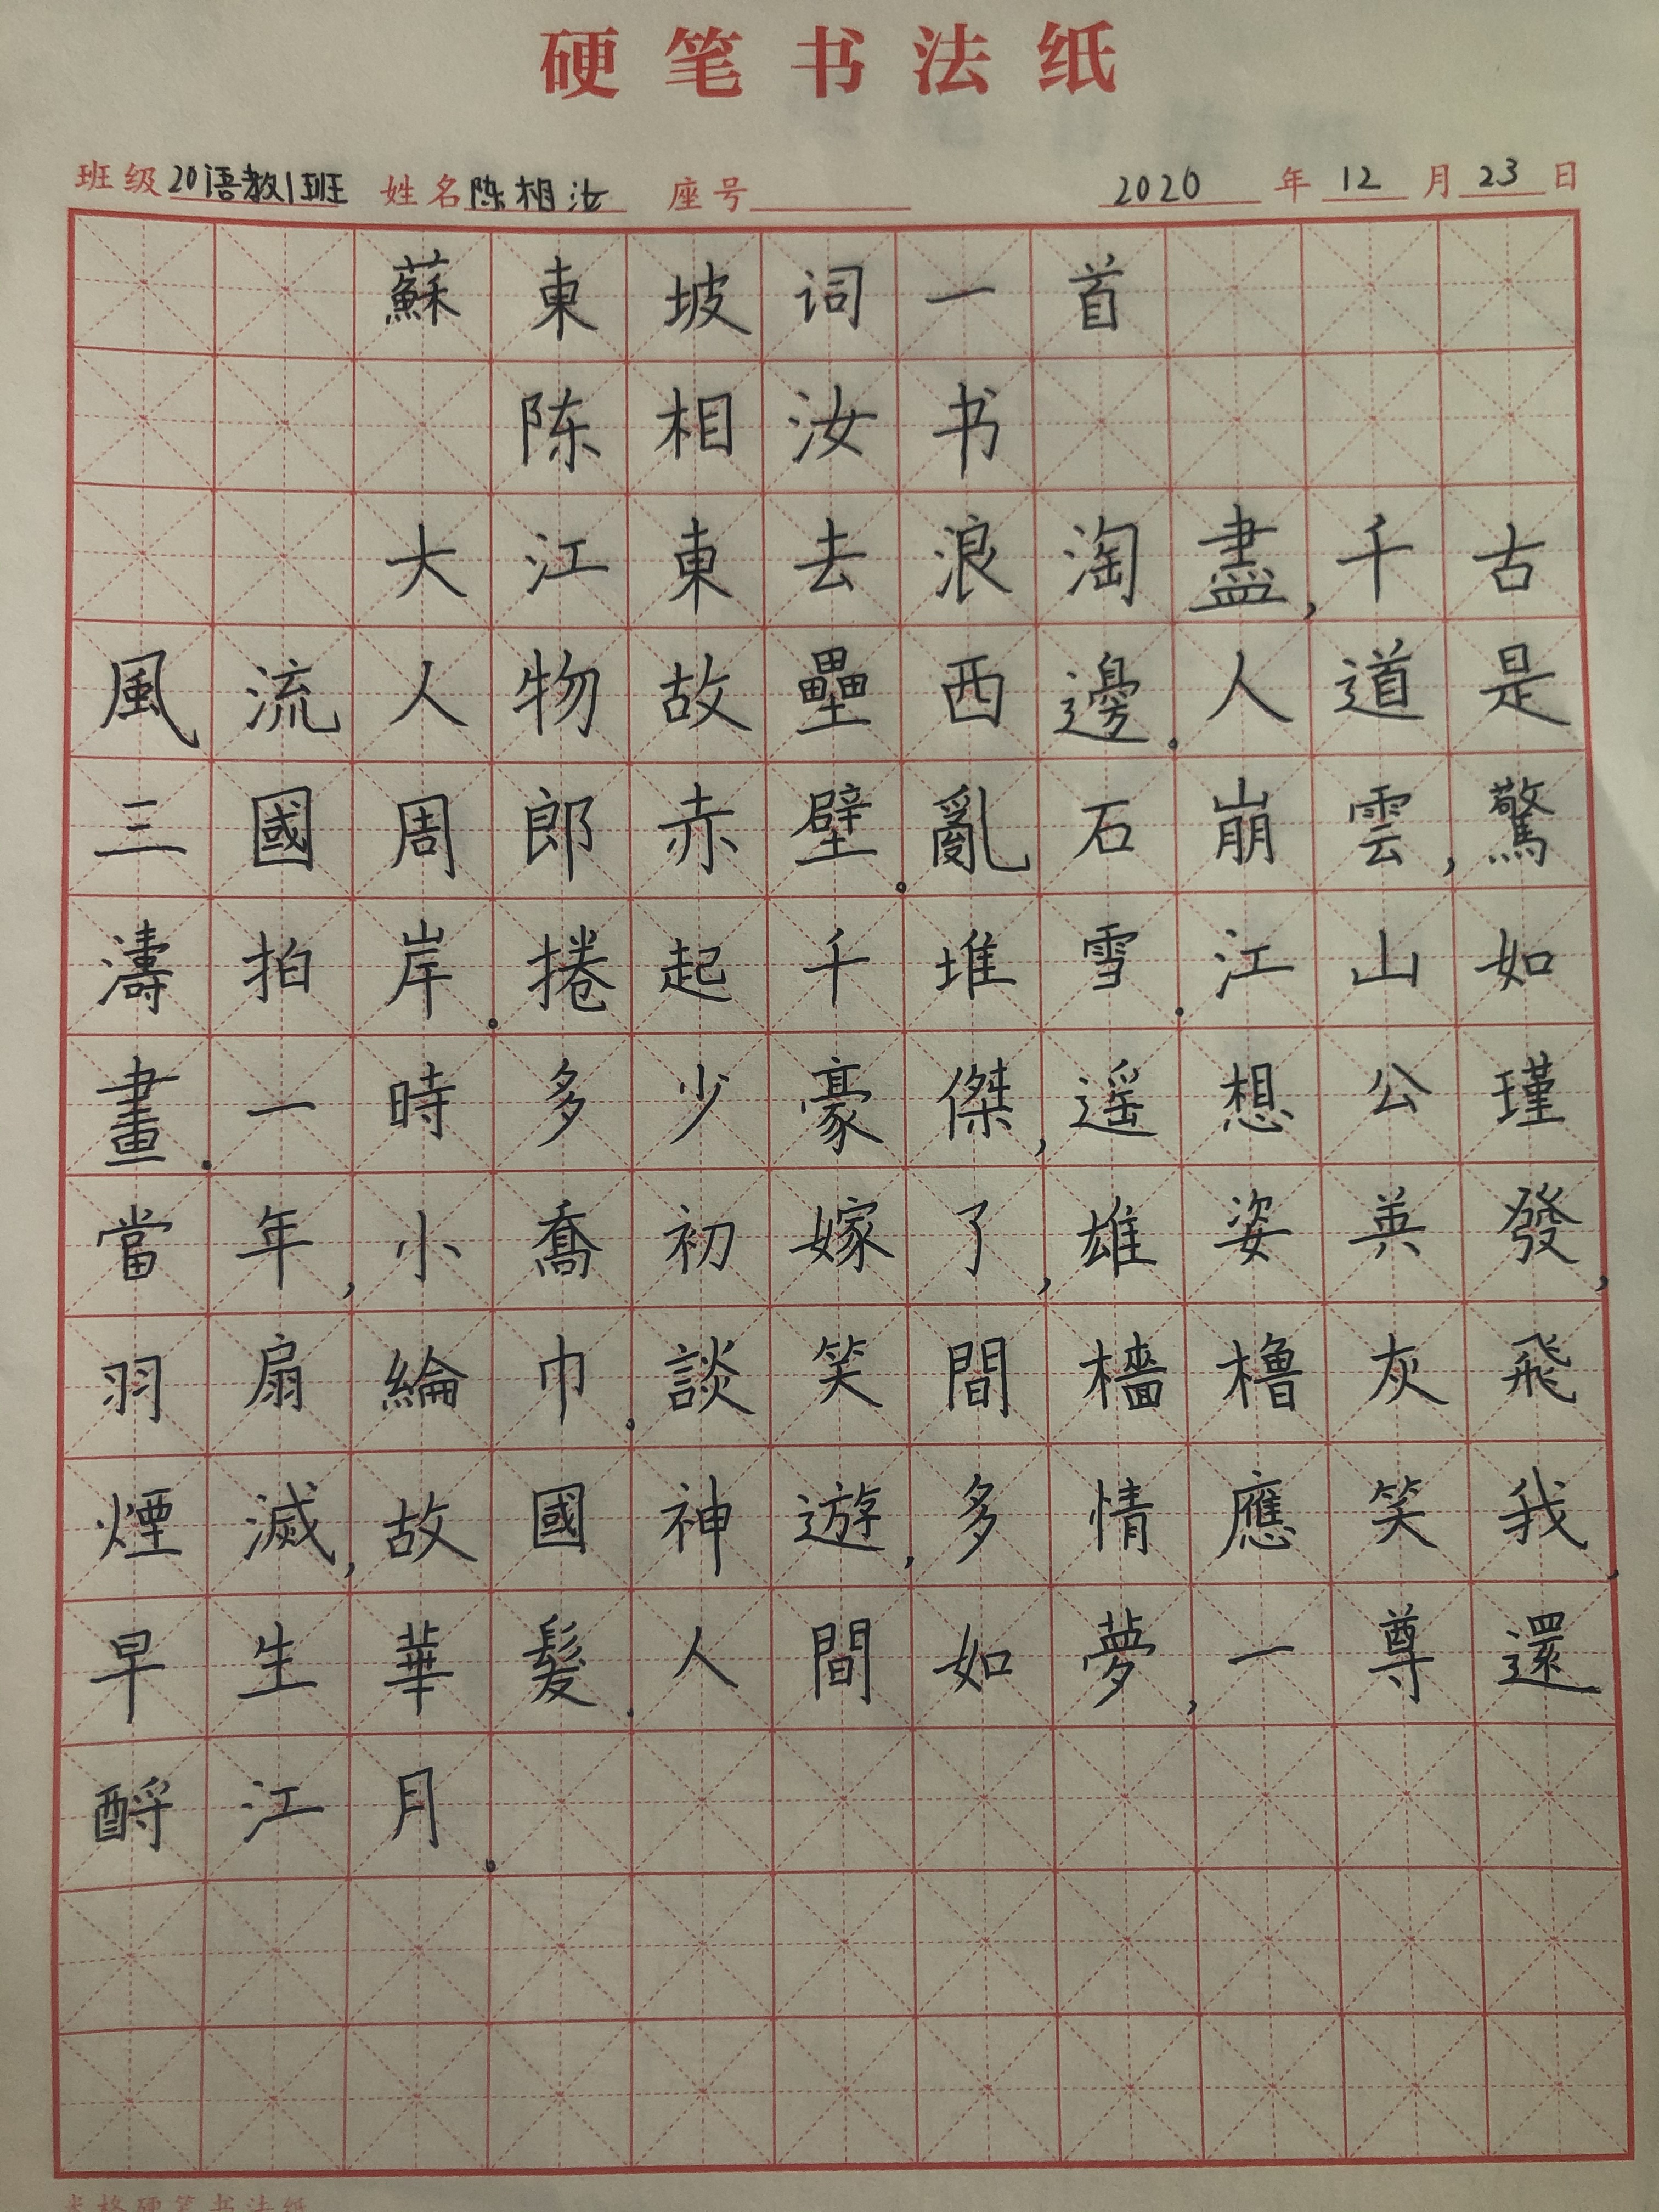 硬笔书法纸
班级20语教1班 姓名陈相汝 座号 2020年12月23日
蘇東坡词一首
陈相汝书
大江東去浪淘盡,千古
風流人物故壘西邊。人道是
三國周郎赤壁。亂石崩雲,驚
濤拍岸。捲起千堆雪。江山如
畫。一時多少豪傑,遥想公瑾
當年,小喬初嫁了,雄姿英發,
羽扇綸巾。談笑間檣櫓灰飛
煙滅,故國神遊,多情應笑我,
早生華髮。人間如夢,一尊還
酹江月。
米格硬笔书法纸